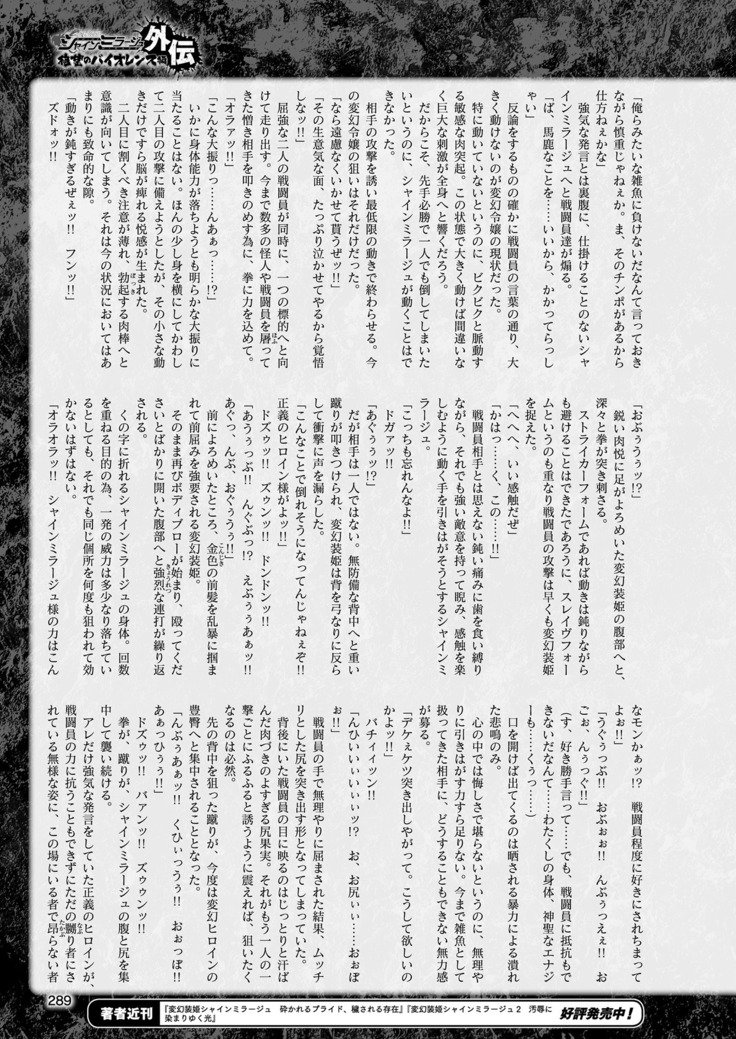 シャインミラージュ外伝
「俺らみたいな雑魚に負けないだなんて言っておき
ながら慎重じゃねぇか。ま、そのチンポがあるから
仕方ねぇかな」
強気な発言とは裏腹に、仕掛けることのないシャ
インミラージュへと戦闘員達が煽る。
「ば、馬鹿なことを……いいから、かかってらっし
ゃい」
反論をするものの確かに戦闘員の言葉の通り、大
きく動けないのが変幻令嬢の現状だった。
特に動いていないというのに、ビクビクと脈動す
る敏感な肉突起。この状態で大きく動けば間違いな
く巨大な刺激が全身へと響くだろう。
だからこそ、先手必勝で一人でも倒してしまいた
いというのに、シャインミラージュが動くことはで
きなかった。
相手の攻撃を誘い最低限の動きで終わらせる。今
の変幻令嬢の狙いはそれだけだった。
「なら遠慮なくいかせて貰うぜッ!!
「その生意気な面、たっぷり泣かせてやるから覚悟
しなッ!!」
屈強な二人の戦闘員が同時に、一つの標的へと向
けて走り出す。今まで数多の怪人や戦闘員を屠って
きた憎き相手を叩きのめす為に、拳に力を込めて。
「オラァッ!!」
「こんな大振りっ……んあぁっ……!?」
いかに身体能力が落ちようとも明らかな大振りに
当たることはない。ほんの少し身を横にしてかわし
て二人目の攻撃に備えようとしたが、その小さな動
きだけですら脳が痺れる悦感が生まれた。
二人目に割くべき注意が薄れ、勃起する肉棒へと
意識が向いてしまう。それは今の状況においてはあ
まりにも致命的な隙。
「動きが鈍すぎるぜぇッ!! フンッ!!」
ズドォッ!!
「おぶぅうぅッ!?」
鋭い肉悦に足がよろめいた変幻装姫の腹部へと、
深々と拳が突き刺さる。
ストライカーフォームであれば動きは鈍りながら
も避けることはできたであろうに、スレイヴフォー
ムというのも重なり戦闘員の攻撃は早くも変幻装姫
を捉えた。
「へへへ、いい感触だぜ」
「かはっ……く、この……!!」
戦闘員相手とは思えない鈍い痛みに歯を食い縛り
ながら、それでも強い敵意を持って睨み、感触を楽
しむように動く手を引きはがそうとするシャインミ
ラージュ。
「こっちも忘れんなよ!!」
ドガァッ!!
「あぐぅぅッ!?」
だが相手は一人ではない。無防備な背中へと重い
蹴りが叩きつけられ、変幻装姫は背を弓なりに反ら
して衝撃に声を漏らした。
「こんなことで倒れそうになってんじゃねぇぞ!!
正義のヒロイン様がよッ!!」
ドズゥッ!! ズゥンッ!! ドンドンッ!!
「あうぅっぶ!! んぐぶっ!? えぶぅぅあぁッ!!
あぐっ、んぶ、おぐぅうぅ!!」
前によろめいたところ、金色の前髪を乱暴に掴ま
れて前屈みを強要される変幻装姫。
そのまま再びボディブローが始まり、殴ってくだ
さいとばかりに開いた腹部へと強烈な連打が繰り返
される。
くの字に折れるシャインミラージュの身体。回数
を重ねる目的の為、一発の威力は多少なり落ちてい
るとしても、それでも同じ個所を何度も狙われて効
かないはずはない。
「オラオラッ!! シャインミラージュ様の力はこん
なモンかぁッ!? 戦闘員程度に好きにされちまって
よぉ!!」
「うぐぅっぶ!! おぶぉぉ!! んぶぅっえぇ!! お
ごぉ、んぅっぐ!!」
(す、好き勝手言って……でも、戦闘員に抵抗もで
きないだなんて……わたくしの身体、神聖なエナジ
ーも……くぅっ……)
口を開けば出てくるのは晒される暴力による潰れ
た悲鳴のみ。
心の中では悔しさで堪らないというのに、無理や
りに引きはがす力すら足りない。今まで雑魚として
扱ってきた相手に、どうすることもできない無力感
が募る。
「デケぇケツ突き出しやがって。こうして欲しいの
かよッ!!」
バチィィツン!!
「んひぃいぃぃいぃッ!? お、お尻ぃぃ……おぉぼ
ぉ!!」
戦闘員の手で無理やりに屈まされた結果、ムッチ
リとした尻を突き出す形となってしまっていた。
背後にいた戦闘員の目に映るのはじっとりと汗ば
んだ肉づきのよすぎる尻果実。それがもう一人の一
撃ごとにふるふると誘うように震えれば、狙いたく
なるのは必然。
先の背中を狙った蹴りが、今度は変幻ヒロインの
豊臀へと集中されることとなった。
「んぶぅあぁッ!! くひぃっうぅ!! おぉっぽ!!
あぁっひぅぅ!!」
ドズゥッ!! バァンッ!! ズゥゥンッ!!
拳が、蹴りが、シャインミラージュの腹と尻を集
中して襲い続ける。
アレだけ強気な発言をしていた正義のヒロインが、
戦闘員の力に抗うこともできずにただの嬲り者にさ
れている無様な姿に、この場にいる者で昂らない者
289
著者近刊
『変幻装姫シャインミラージュ 砕かれるプライド、穢される存在』『変幻装姫シャインミラージュ2 汚辱に
染まりゆく光』
好評発売中!